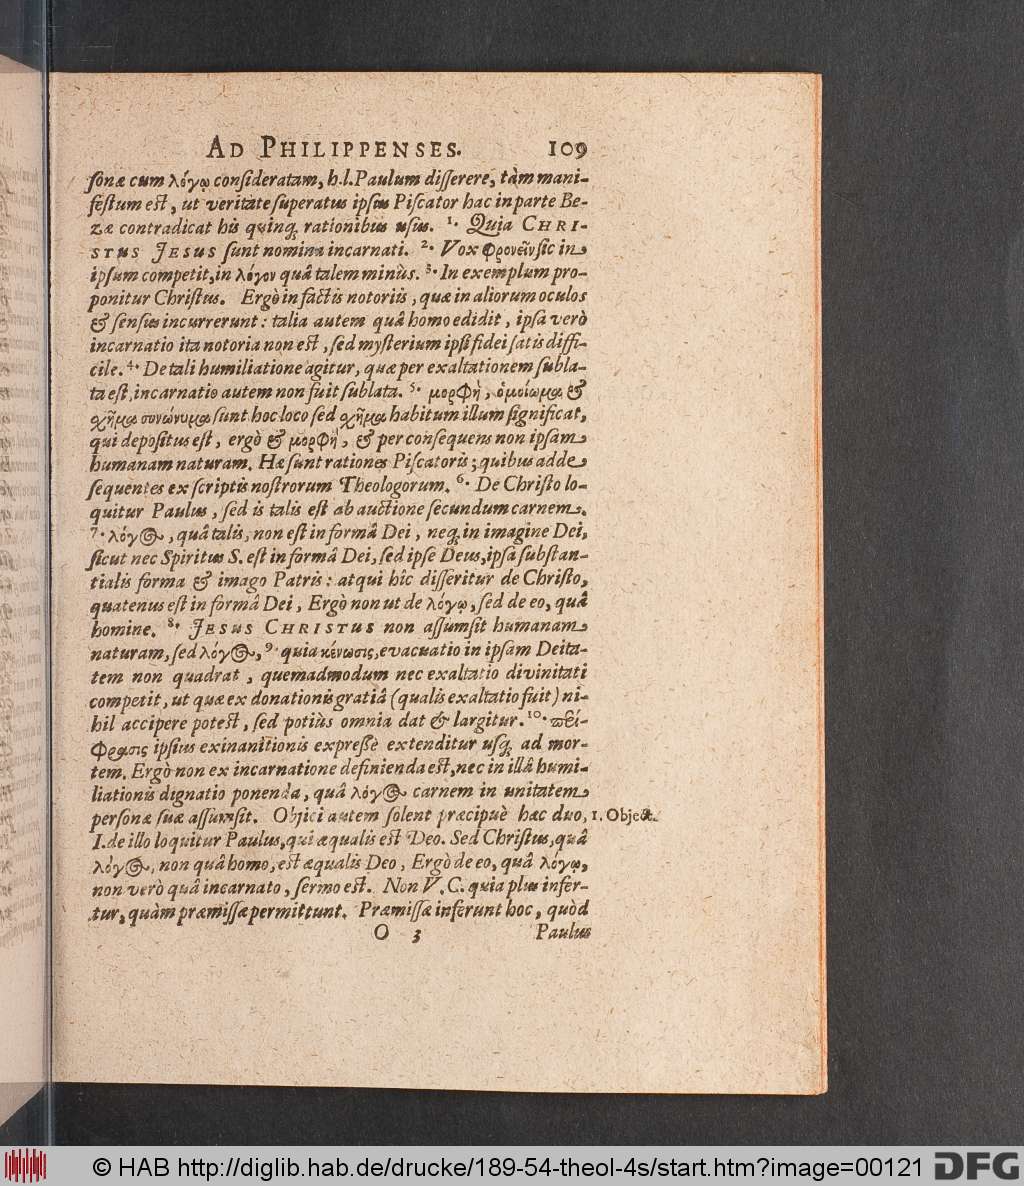 AD PHILIPPENSES. 109
sonæ cum λόγῳ consideratam, h.l. Paulum disserere, tàm mani-
festum est, ut veritate superatus ipsius Piscator hac in parte Be-
zæ contradicat his quinq; rationibus usus. 1. Quia CHRI-
STUS JESUS sunt nomina incarnati. 2. Vox φρονεῖν sic in
ipsum competit, in λόγον quâ talem minùs. 3. In exemplum pro-
ponitur Christus. Ergò in factis notoriis, quæ in aliorum oculos
& sensus incurrerunt: talia autem quâ homo edidit, ipsa verò
incarnatio ita notoria non est, sed mysterium ipsi fidei satis diffi-
cile. 4. De tali humiliatione agitur, quæ per exaltationem subla-
ta est, incarnatio autem non fuit sublata. 5. μορφὴ, ὁμοίωμα &
χῆμα συνώνυμα sunt hoc loco sed χῆμα habitum illum significat,
qui depositus est, ergò & μορφὴ, & per consequens non ipsam
humanam naturam. Hæ sunt rationes Piscatoris; quibus adde
sequentes ex scriptis nostrorum Theologorum. 6. De Christo lo-
quitur Paulus, sed is talis est ab auctione secundum carnem.
7. λόγος, quâ talis, non est in formâ Dei, neq; in imagine Dei,
sicut nec Spiritus S. est in formâ Dei, sed ipse Deus, ipsa substan-
tialis forma & imago Patris: atqui hîc disseritur de Christo,
quatenus est in formâ Dei, Ergò non ut de λόγῳ, sed de eo, quâ
homine. 8. JESUS CHRISTUS non assumsit humanam
naturam, sed λόγος, 9. quia κένωσις, evacuatio in ipsam Deita-
tem non quadrat, quemadmodum nec exaltatio divinitati
competit, ut quæ ex donationis gratiâ (qualis exaltatio fuit) ni-
hil accipere potest, sed potiùs omnia dat & largitur. 10. πεϱί-
φρασις ipsius exinanitionis expressè extenditur usq; ad mor-
tem. Ergò non ex incarnatione definienda est, nec in illâ humi-
liationis dignatio ponenda, quâ λόγος carnem in unitatem
personæ suæ assumsit. Objici autem solent præcipuè hæc duo, 1. Object.
I. de illo loquitur Paulus, qui æqualis est Deo. Sed Christus, quâ
λόγος, non quâ homo, est æqualis Deo, Ergò de eo, quâ λόγῳ,
non verò quâ incarnato, sermo est. Non V. C. quia plus infer-
tur, quàm præmissæ permittunt. Præmissæ inferunt hoc, quòd
O 3 Paulus
© HAB http://diglib.hab.de/drucke/189-54-theol-4s/start.htm?image=00121 DFG